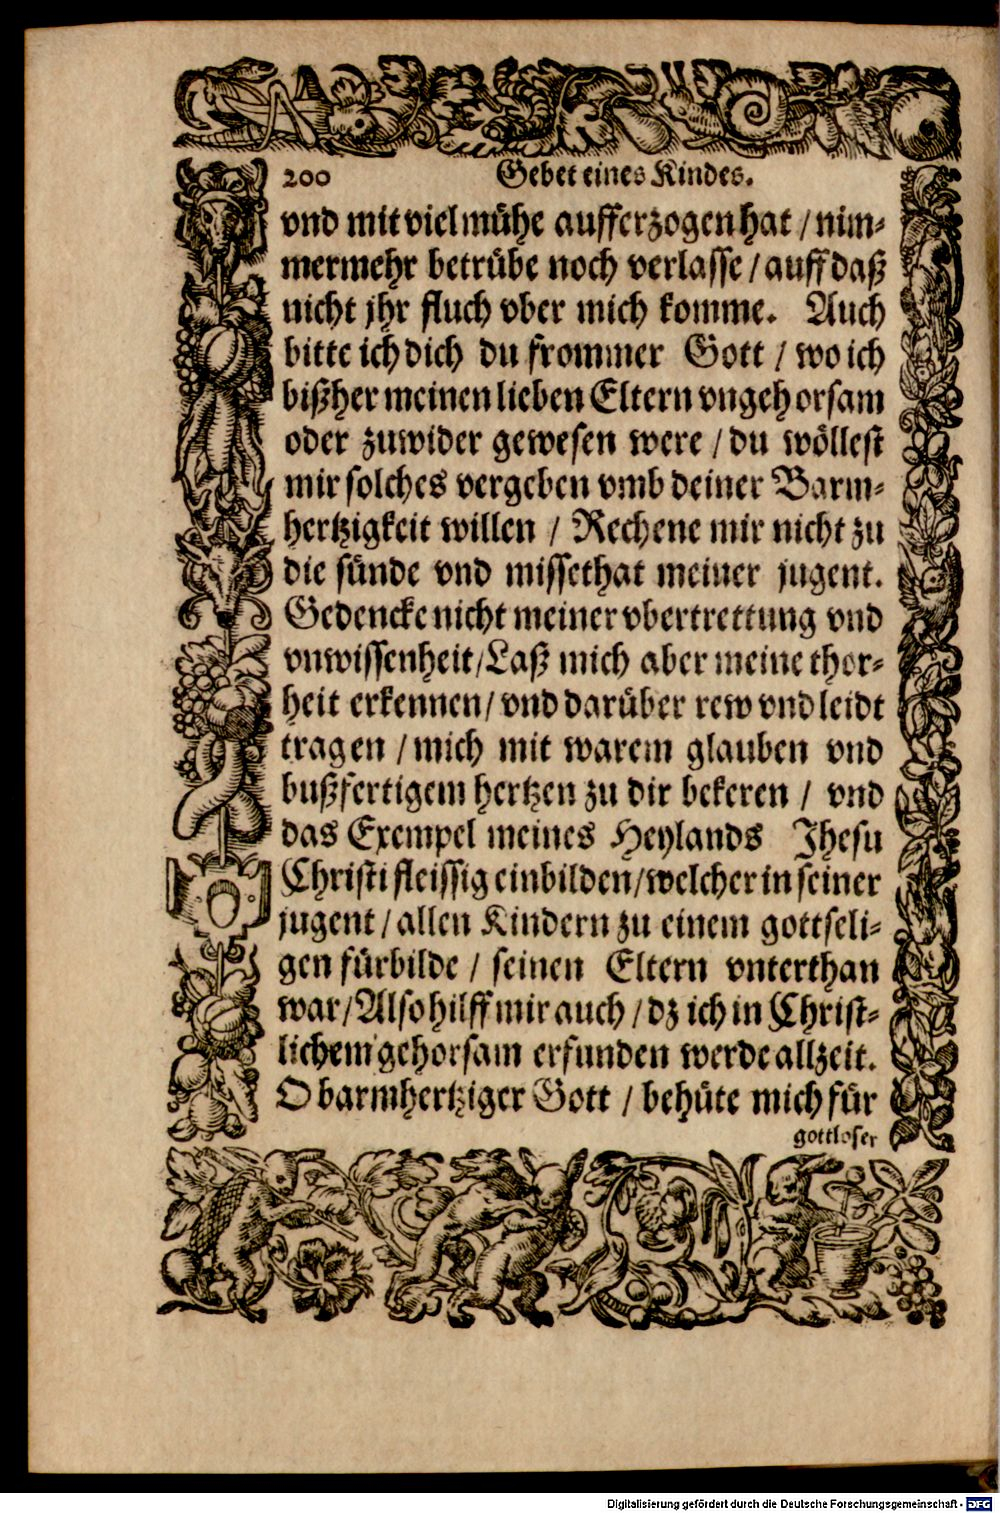 200 Gebet eines Kindes.
vnd mit viel mühe aufferzogen hat / nim-
mermehr betrübe noch verlasse / auff daß
nicht jhr fluch vber mich komme. Auch
bitte ich dich du frommer Gott / wo ich
bißher meinen lieben Eltern vngehorsam
oder zuwider gewesen were / du wöllest
mir solches vergeben vmb deiner Barm-
hertzigkeit willen / Rechene mir nicht zu
die sünde vnd missethat meiner jugent.
Gedencke nicht meiner vbertrettung vnd
vnwissenheit / Laß mich aber meine thor-
heit erkennen / vnd darüber rew vnd leidt
tragen / mich mit warem glauben vnd
bußfertigem hertzen zu dir bekeren / vnd
das Exempel meines Heylands Jhesu
Christi fleissig einbilden / welcher in seiner
jugent / allen Kindern zu einem gottseli-
gen fürbilde / seinen Eltern vnterthan
war / Also hilff mir auch / dz ich in Christ-
lichem gehorsam erfunden werde allzeit.
O barmhertziger Gott / behüte mich für
gottloser
Digitalisierung gefördert durch die Deutsche Forschungsgemeinschaft - DFG